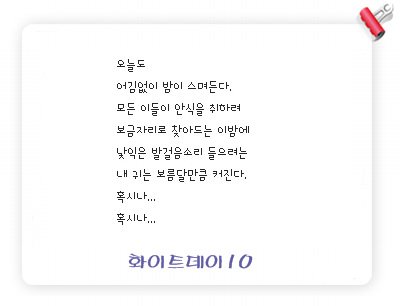 오늘도
어김없이 밤이 스며든다.
모든 이들이 안식을 취하려
보금자리로 찾아드는 이밤에
낯익은 발걸음소리 들으려는
내 귀는 보름달만큼 커진다.
혹시나...
혹시나...
화이트데이10